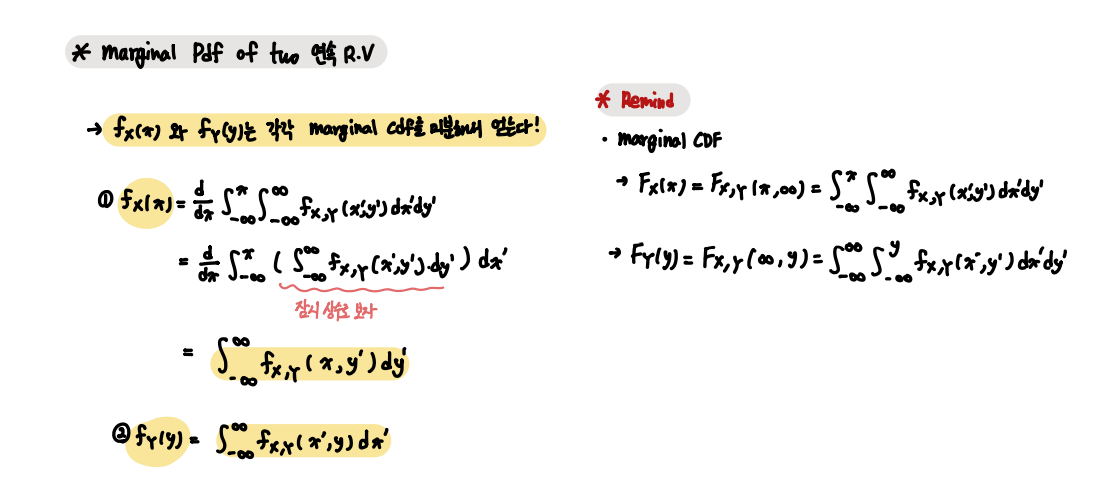 * marginal Pdf of two 연속 R.V
→ f_X(x) 와 f_Y(y)는 각각 marginal cdf를 미분해서 얻는다!
① f_X(x) = d/dx ∫_{-∞}^{x} ∫_{-∞}^{∞} f_{X,Y}(x',y') dx'dy'
= d/dx ∫_{-∞}^{x} ( ∫_{-∞}^{∞} f_{X,Y}(x',y')·dy' ) dx'
잠시 상수로 보자
= ∫_{-∞}^{∞} f_{X,Y}(x,y') dy'
② f_Y(y) = ∫_{-∞}^{∞} f_{X,Y}(x',y) dx'
* Remind
• marginal CDF
→ F_X(x) = F_{X,Y}(x,∞) = ∫_{-∞}^{x} ∫_{-∞}^{∞} f_{X,Y}(x',y') dx'dy'
→ F_Y(y) = F_{X,Y}(∞,y) = ∫_{-∞}^{∞} ∫_{-∞}^{y} f_{X,Y}(x',y') dx'dy'